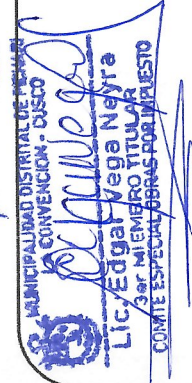 MUNICIPALIDAD DISTRITAL DE
CONVENCION - CUSCO
Lic. Edgar Vega Neyra
3er MIEMBRO TITULAR
COMITE ESPECIAL OBRAS POR IMPUESTO